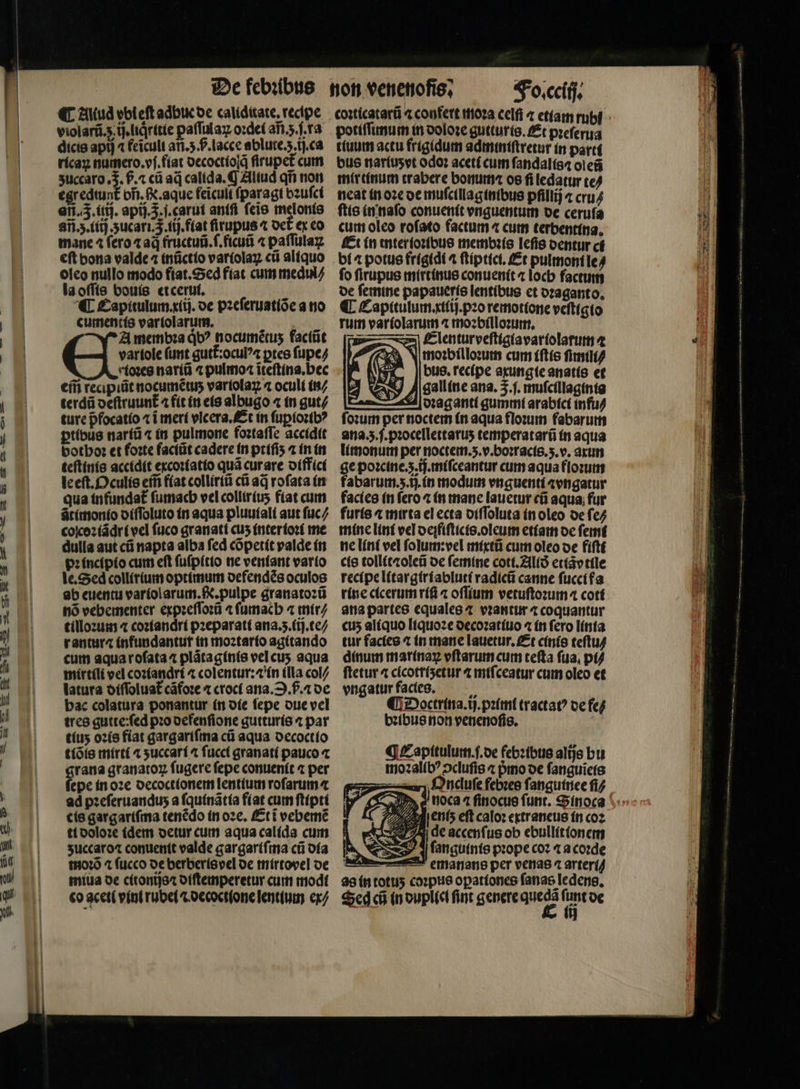 De febribus non venenosis, Fo.cciij.
¶ Aliud vbi est adhuc de caliditate. recipe
violarũ.ʒ.ij.liq̃ritie passulaꝝ ordei añ.ʒ.j.ra
dicis apij ⁊ feiculi añ.ʒ.ß.lacce ablute.ʒ.ij.ca
ricaꝝ numero.vj.fiat decoctio
zuccaro.℥.ß.⁊ cũ aq̃ calida.¶ Aliud qñ non
bñ.℞.aque feiculi sparagi brusci
añ.℥.iiij. apij.℥.j.carui anisi seis melonis
añ.ʒ.iiij.zucari.℥.iij.fiat sirupus ⁊ det̃ ex eo
mane ⁊ sero ⁊ aq̃ fructuũ.s.ficuũ ⁊ passulaꝝ
est bona valde ⁊ inũctio variolaꝝ cũ aliquo
oleo nullo modo fiat.Sed fiat cum medul⸗
la ossis bouis et cerui.
¶ Capitulum.xiij. de preseruatiõe a no
cumentis variolarum.
EA membra qͥbꝰ nocumẽtuʒ faciũt
variole sunt gutt̃:oculꝰ⁊ ptes supe⸗
riores nariũ ⁊ pulmo⁊ ĩtestina.hec
em̃ recipiũt nocumẽtuʒ variolaꝝ ⁊ oculi in⸗
terdũ destruunt̃ ⁊ fit in eis albugo ⁊ in gut⸗
ture p̃focatio ⁊ ĩ meri vlcera.Et in supioribꝰ
ptibus nariũ ⁊ in pulmone fortasse accidit
bothor et forte faciũt cadere in ptisiʒ ⁊ in in
testinis accidit excoriatio quã curare diffici
le est.Oculis em̃ fiat colliriũ cũ aq̃ rosata in
qua infundat̃ sumach vel colliriuʒ fiat cum
ãtimonio dissoluto in aqua pluuiali aut suc⸗
co corĩãdri vel suco granati cuʒ interiori me
dulla aut cũ napta alba sed cõpetit valde in
principio cum est suspitio ne veniant vario
le.Sed collirium optimum defendẽs oculos
ab euentu variolarum.℞.pulpe granatorũ
nõ vehementer expressorũ ⁊ sumach ⁊ mir⸗
tillorum ⁊ coriandri preparati ana.ʒ.iij.te⸗
rantur⁊ infundantur in mortario agitando
cum aqua rosata ⁊ plãtaginis vel cuʒ aqua
mirtili vel coriandri ⁊ colentur:⁊ in illa col⸗
latura dissoluat̃ cãfore ⁊ croci ana.Ɔ.ß.⁊ de
hac colatura ponantur in die sepe due vel
tres gutte:sed pro defensione gutturis ⁊ par
tiuʒ oris fiat gargarisma cũ aqua decoctio
tiõis mirti ⁊ zuccari ⁊ succi granati pauco ⁊
grana granatoꝝ sugere sepe conuenit ⁊ per
sepe in ore decoctionem lentium rosarum ⁊
ad preseruanduʒ a squinãtia fiat cum stipti
cis gargarisma tenẽdo in ore. Et ĩ vehemẽ
ti dolore idem detur cum aqua calida cum
zuccaro⁊ conuenit valde gargarisma cũ dia
morõ ⁊ succo de berberis vel de mirto vel de
miua de citonijs⁊ distemperetur cum modi
co aceti vini rubei ⁊ decoctione lentium ex⸗
corticatarũ ⁊ confert mora celsi ⁊ etiam rubi
potissimum in dolore gutturis.Et preserua
tiuum actu frigidum administretur in parti
bus nariuʒ vt odor aceti cum sandalis⁊ oleũ
mirtinum trahere bonum⁊ os si ledatur te⸗
neat in ore de muscillaginibus psillij ⁊ cru⸗
stis in naso conuenit vnguentum de cerusa
cum oleo rosato factum ⁊ cum terbentina.
Et in interioribus membris lesis dentur ci
bi ⁊ potus frigidi ⁊ stiptici. Et pulmoni le⸗
so sirupus mirtinus conuenit ⁊ loch factum
de semine papaueris lentibus et draganto.
¶ Capitulum.xiiij.pro remotione vestigio
rum variolarum ⁊ morbillorum.
Elentur vestigia variolarum ⁊
morbillorum cum istis simili⸗
bus. recipe axungie anatis et
galline ana.℥.s. muscillaginis
draganti gummi arabici infu⸗
sorum per noctem in aqua florum fabarum
ana.ʒ.s.procellettaruʒ temperatarũ in aqua
limonum per noctem.ʒ.v.borracis.ʒ.v. axun
ge porcine.ʒ.ij.misceantur cum aqua florum
fabarum.ʒ.ij.in modum vnguenti ⁊vngatur
facies in sero ⁊ in mane lauetur cũ aqua, fur
furis ⁊ mirta el ecta dissoluta in oleo de se⸗
mine lini vel de fisticis.oleum etiam de semi
ne lini vel solum:vel mixtũ cum oleo de fisti
cis tollit⁊oleũ de semine coti.Aliõ etiãvtile
recipe litargiri abluti radicũ canne succi fa
rine cicerum risi ⁊ ossium vetustorum ⁊ coti
ana partes equales ⁊ vrantur ⁊ coquantur
cuʒ aliquo liquore decoratiuo ⁊ in sero linia
tur facies ⁊ in mane lauetur.Et cinis testu⸗
dinum marinaꝝ vstarum cum testa sua, pi⸗
stetur ⁊ cicotriʒetur ⁊ misceatur cum oleo et
vngatur facies.
¶ Doctrina.ij.primi tractatꝰ de fe⸗
bribus non venenosis.
¶ Capitulum.j.de febribus alijs hu
moralibꝰ ↄclusis ⁊ p̃mo de sanguieis
Oncluse febres sanguinee si⸗
noca ⁊ sinocus sunt. Sinoca
enĩʒ est calor extraneus in cor
de accensus ob ebullitionem
sanguinis prope cor ⁊ a corde
emanans per venas ⁊ arteri⸗
as in totuʒ corpus opationes sanas ledens.
Sed cũ in duplici sint genere quedã sunt de
C iij